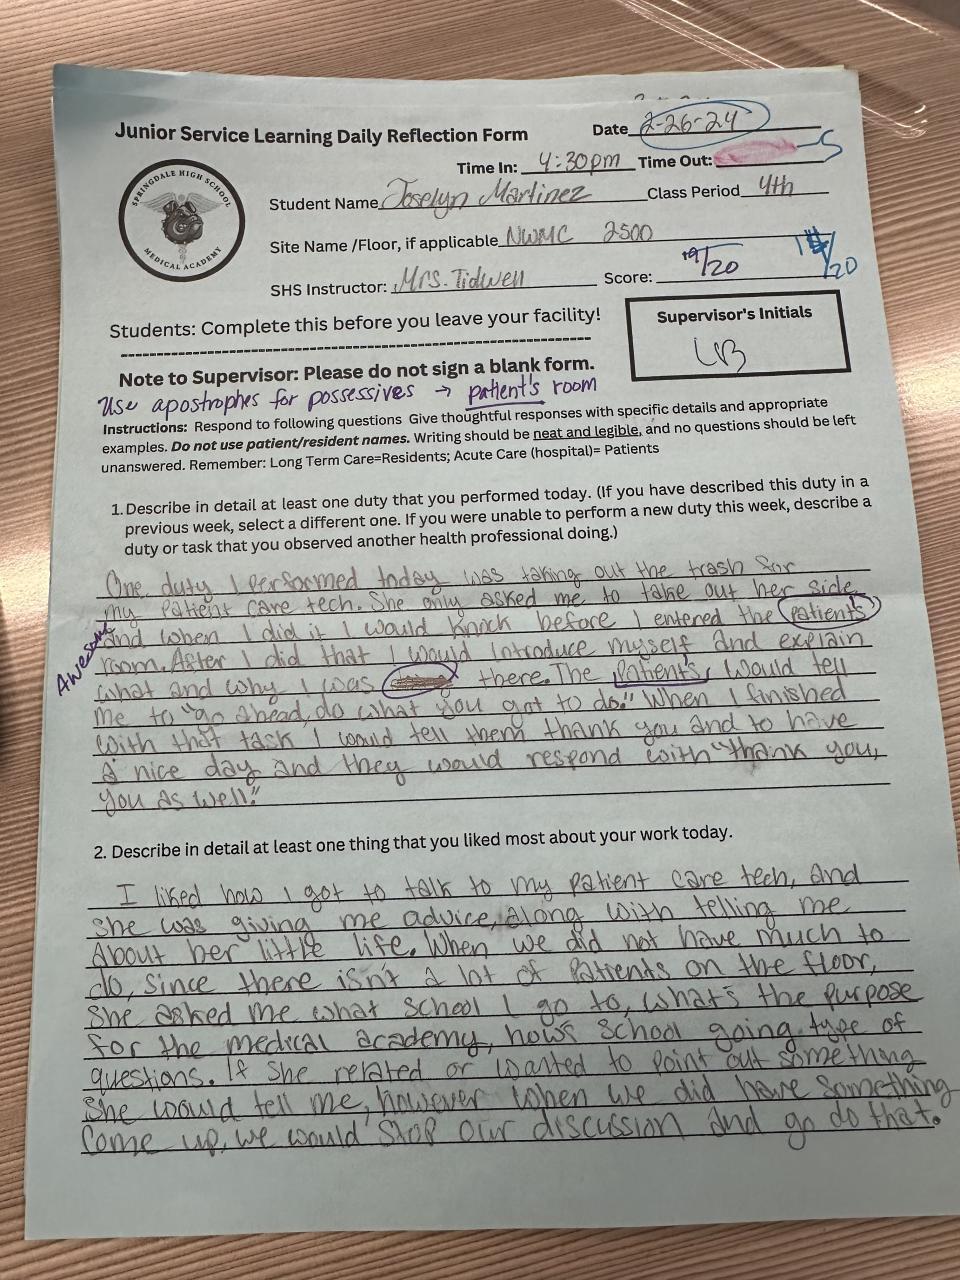 Junior Service Learning Daily Reflection Form
Date 2-26-24
Time In: 4:30pm Time Out: -5
SPRINGDALE HIGH SCHOOL
MEDICAL ACADEMY
Student Name Joselyn Martinez Class Period 4th
Site Name /Floor, if applicable NWMC 2500
SHS Instructor: Mrs. Tidwell Score: 19/20 /20
Students: Complete this before you leave your facility!
Supervisor's Initials
LB
Note to Supervisor: Please do not sign a blank form.
Use apostrophes for possessives → patient's room
Instructions: Respond to following questions Give thoughtful responses with specific details and appropriate
examples. Do not use patient/resident names. Writing should be neat and legible, and no questions should be left
unanswered. Remember: Long Term Care=Residents; Acute Care (hospital)= Patients
1. Describe in detail at least one duty that you performed today. (If you have described this duty in a
previous week, select a different one. If you were unable to perform a new duty this week, describe a
duty or task that you observed another health professional doing.)
One duty I performed today was taking out the trash for
my patient care tech. She only asked me to take out her side
and when I did it I would knock before I entered the patients
Awesome
room. After I did that I would introduce myself and explain
what and why I was there. The patients would tell
me to "go ahead, do what you got to do." When I finished
with that task I would tell them thank you and to have
a nice day and they would respond with "thank you,
you as well."
2. Describe in detail at least one thing that you liked most about your work today.
I liked how I got to talk to my patient care tech, and
she was giving me advice, along with telling me
about her little life. When we did not have much to
do, since there isn't a lot of patients on the floor,
she asked me what school I go to, what's the purpose
for the medical academy, how's school going type of
questions. If she related or wanted to point out something
she would tell me, however when we did have something
come up, we would stop our discussion and go do that.